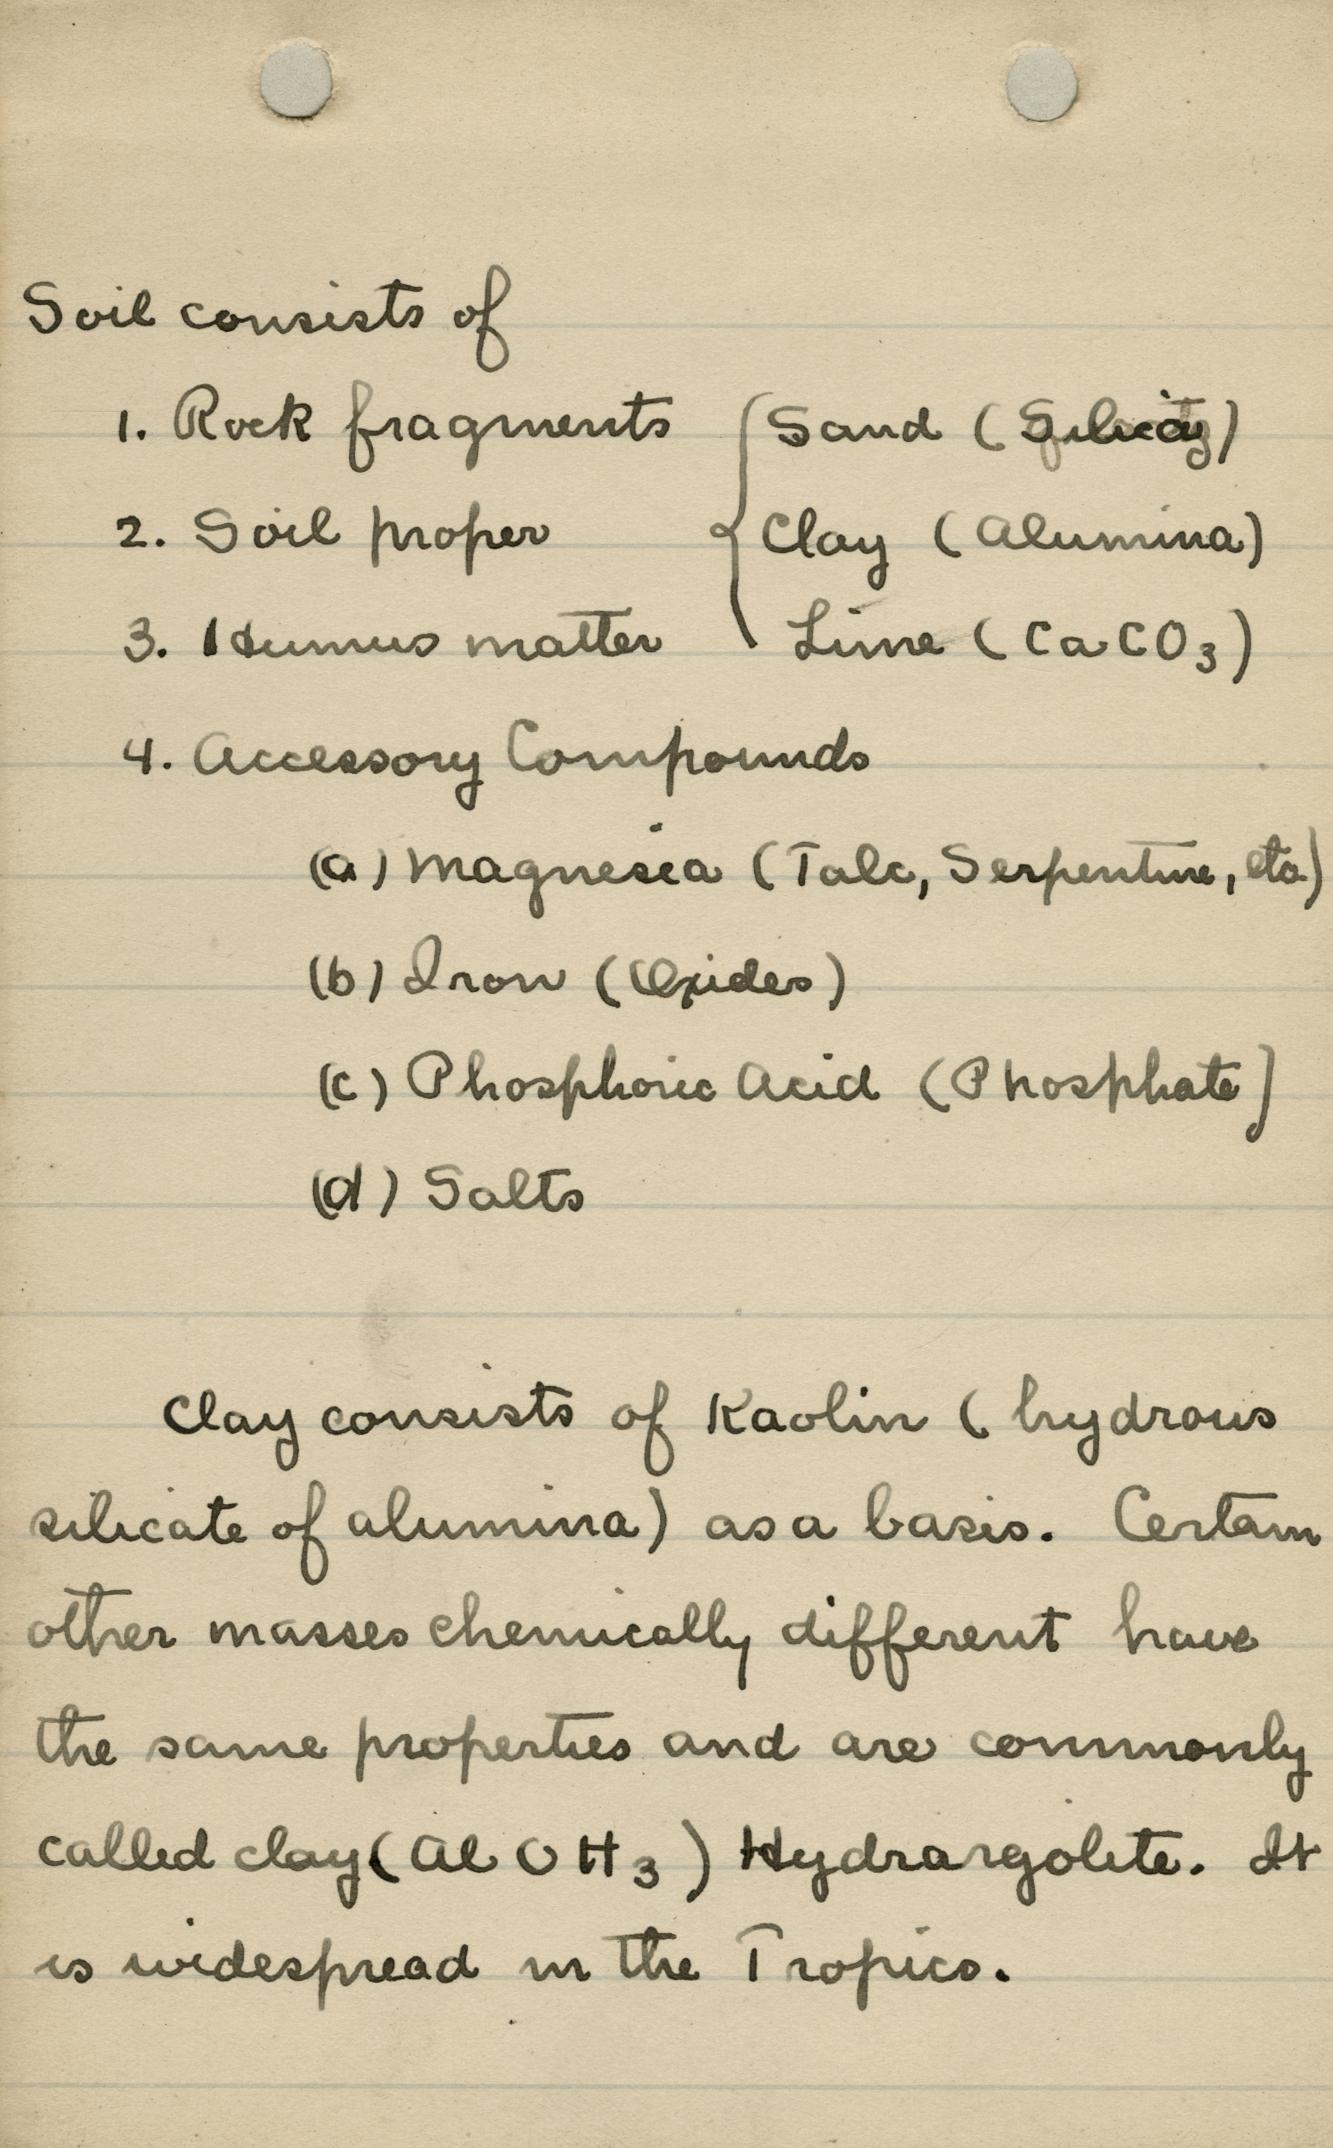 Soil consists of
1. Rock fragments { Sand (Silica)
2. Soil proper Clay (Alumina)
3. Humus matter Lime (CaCO3)
4. Accessory Compounds
(a) Magnesia (Talc, Serpentine, etc)
(b) Iron (Oxides)
(c) Phosphoric Acid (Phosphate]
(d) Salts
Clay consists of Kaolin (hydrous
silicate of alumina) as a basis. Certain
other masses chemically different have
the same properties and are commonly
called clay (Al OH3) Hydrargolite. It
is widespread in the Tropics.